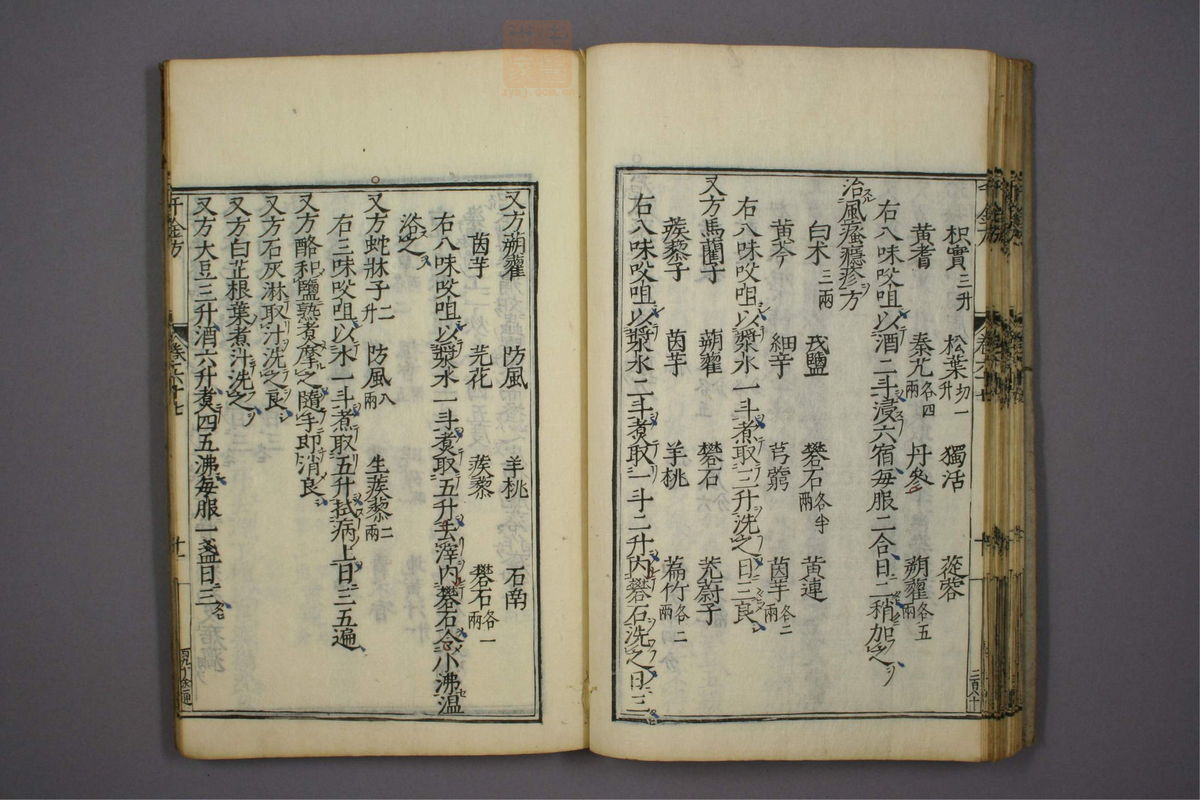 枳實三升　松葉切一升　獨活　蓯蓉
黃耆　秦艽各四兩　丹參　蒴藋各五兩
右八味㕮咀以酒二斗浸六宿每服二合日二稍加之
治風瘙癮疹方
白术三兩　戎鹽　礬石各半兩　黃連
黃芩　細辛　芎藭　茵芋各二兩
右八味㕮咀以漿水一斗煮取三升洗之日三良
又方馬藺子　蒴藋　礬石　茺蔚子
蒺藜子　茵芋　羊桃　萹竹各二兩
右八味㕮咀以漿水二斗煑取一斗二升內礬石洗之日三
千金方
卷六十七
十
又方蒴藋　防風　羊桃　石南
茵芋　芫花　蒺藜　礬石各一兩
右八味㕮咀以漿水一斗煑取五升去滓內礬石令小沸溫
浴之
又方蛇牀子二升　防風八兩　生蒺藜二兩
右三味㕮咀以水一斗煮取五升拭病上日三五遍
又方酪和鹽熟煮摩之隨手即消良
又方石灰淋取汁洗之良
又方白芷根葉煮汁洗之
又方大豆三升酒六升煑四五沸每服一盞日三
千金方
卷六十七
十一